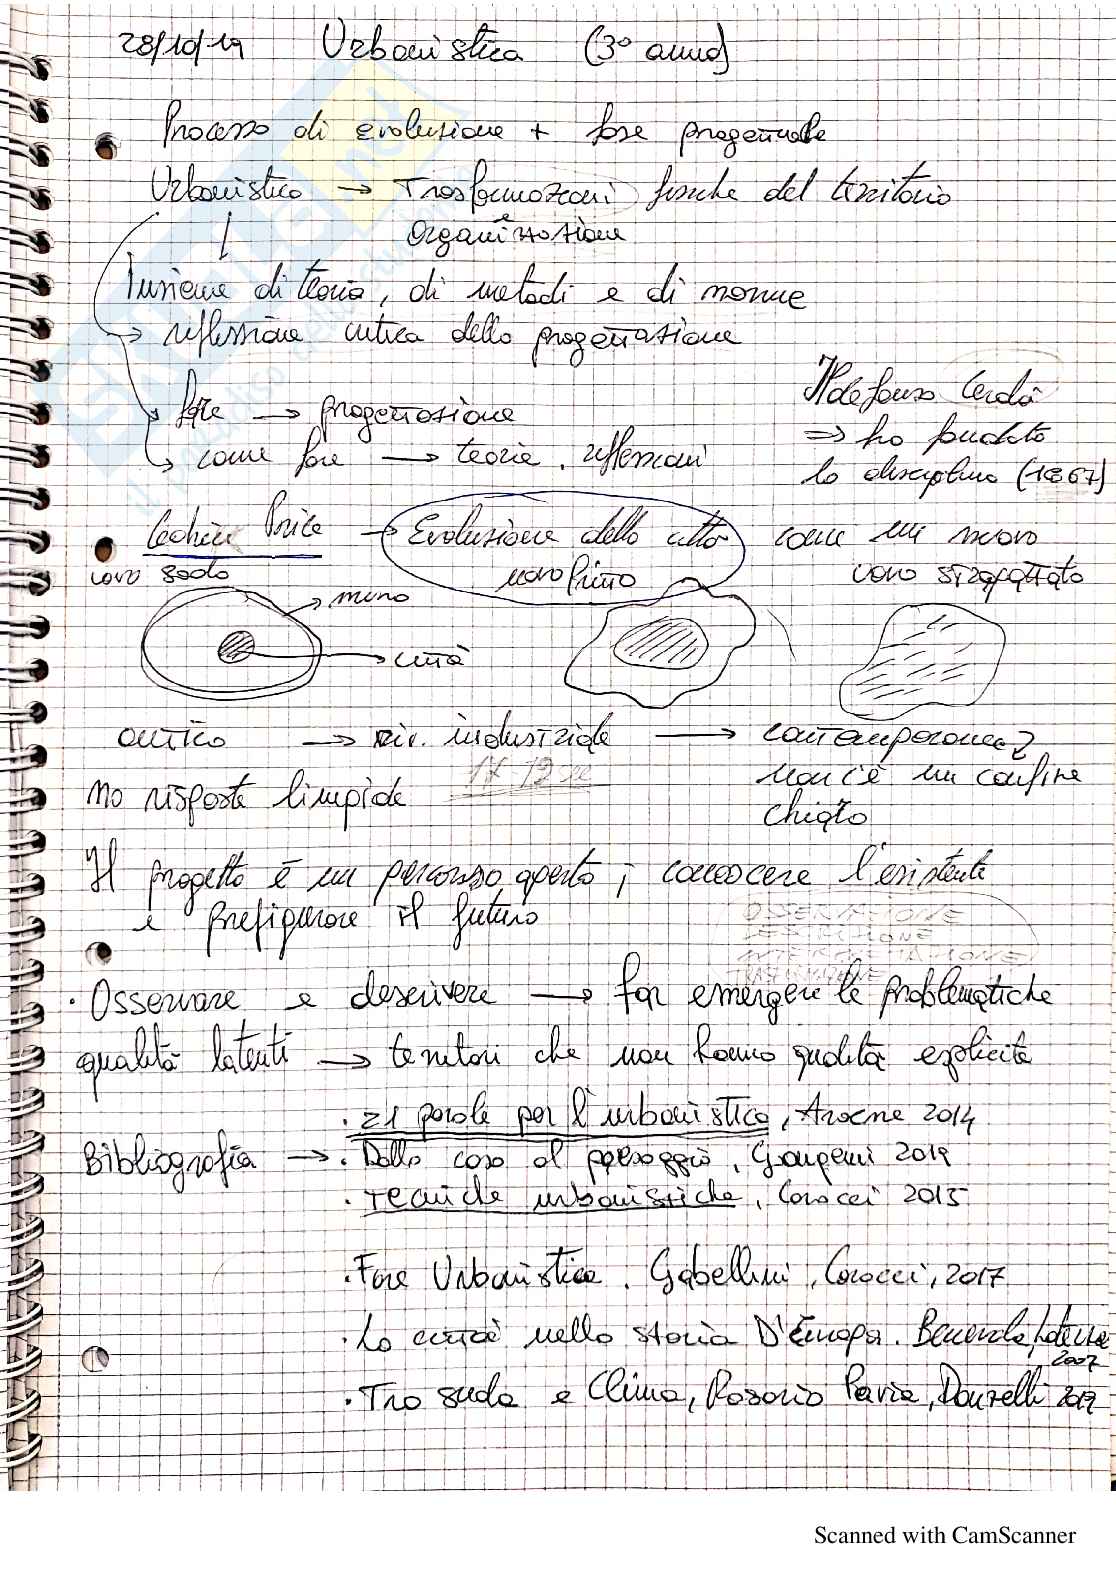 28/10/19 Urbanistica (3° anno)
Processo di evoluzione + fase progettuale
Urbanistica → Trasformazioni fisiche del territorio
e
organizzazione
Insieme di teoria, di metodi e di norme
→ riflessione critica della progettazione
fare → progettazione
come fare → teorie. riflessioni
Ildefonso Cerdà
⇒ ha fondato
la disciplina (1867)
Cedric Price → Evoluzione della città come un uovo
uovo sodo
uovo fritto
uovo strapazzato
mura
città
antico → riv. industriale → contemporanea
17-19
non c'è un confine
chiaro
no risposte limpide
Il progetto è un percorso aperto; conoscere l'esistente
e prefigurare il futuro
OSSERVAZIONE
DESCRIZIONE
INTERPRETAZIONE
TRASFORMAZIONE
· Osservare e descrivere → far emergere le problematiche
qualità latenti → territori che non hanno qualità esplicite
· 21 parole per l'urbanistica, 2014
Bibliografia → · Dalla casa al paesaggio, Gangemi 2019
· Tecniche urbanistiche, Carocci 2015
· Fare Urbanistica. Gabellini, Carocci, 2017
· La città nella storia D'Europa. Benevolo, Laterza
2007
· Tra suolo e Clima, Rosario Pavia, Donzelli 2019
Scanned with CamScanner